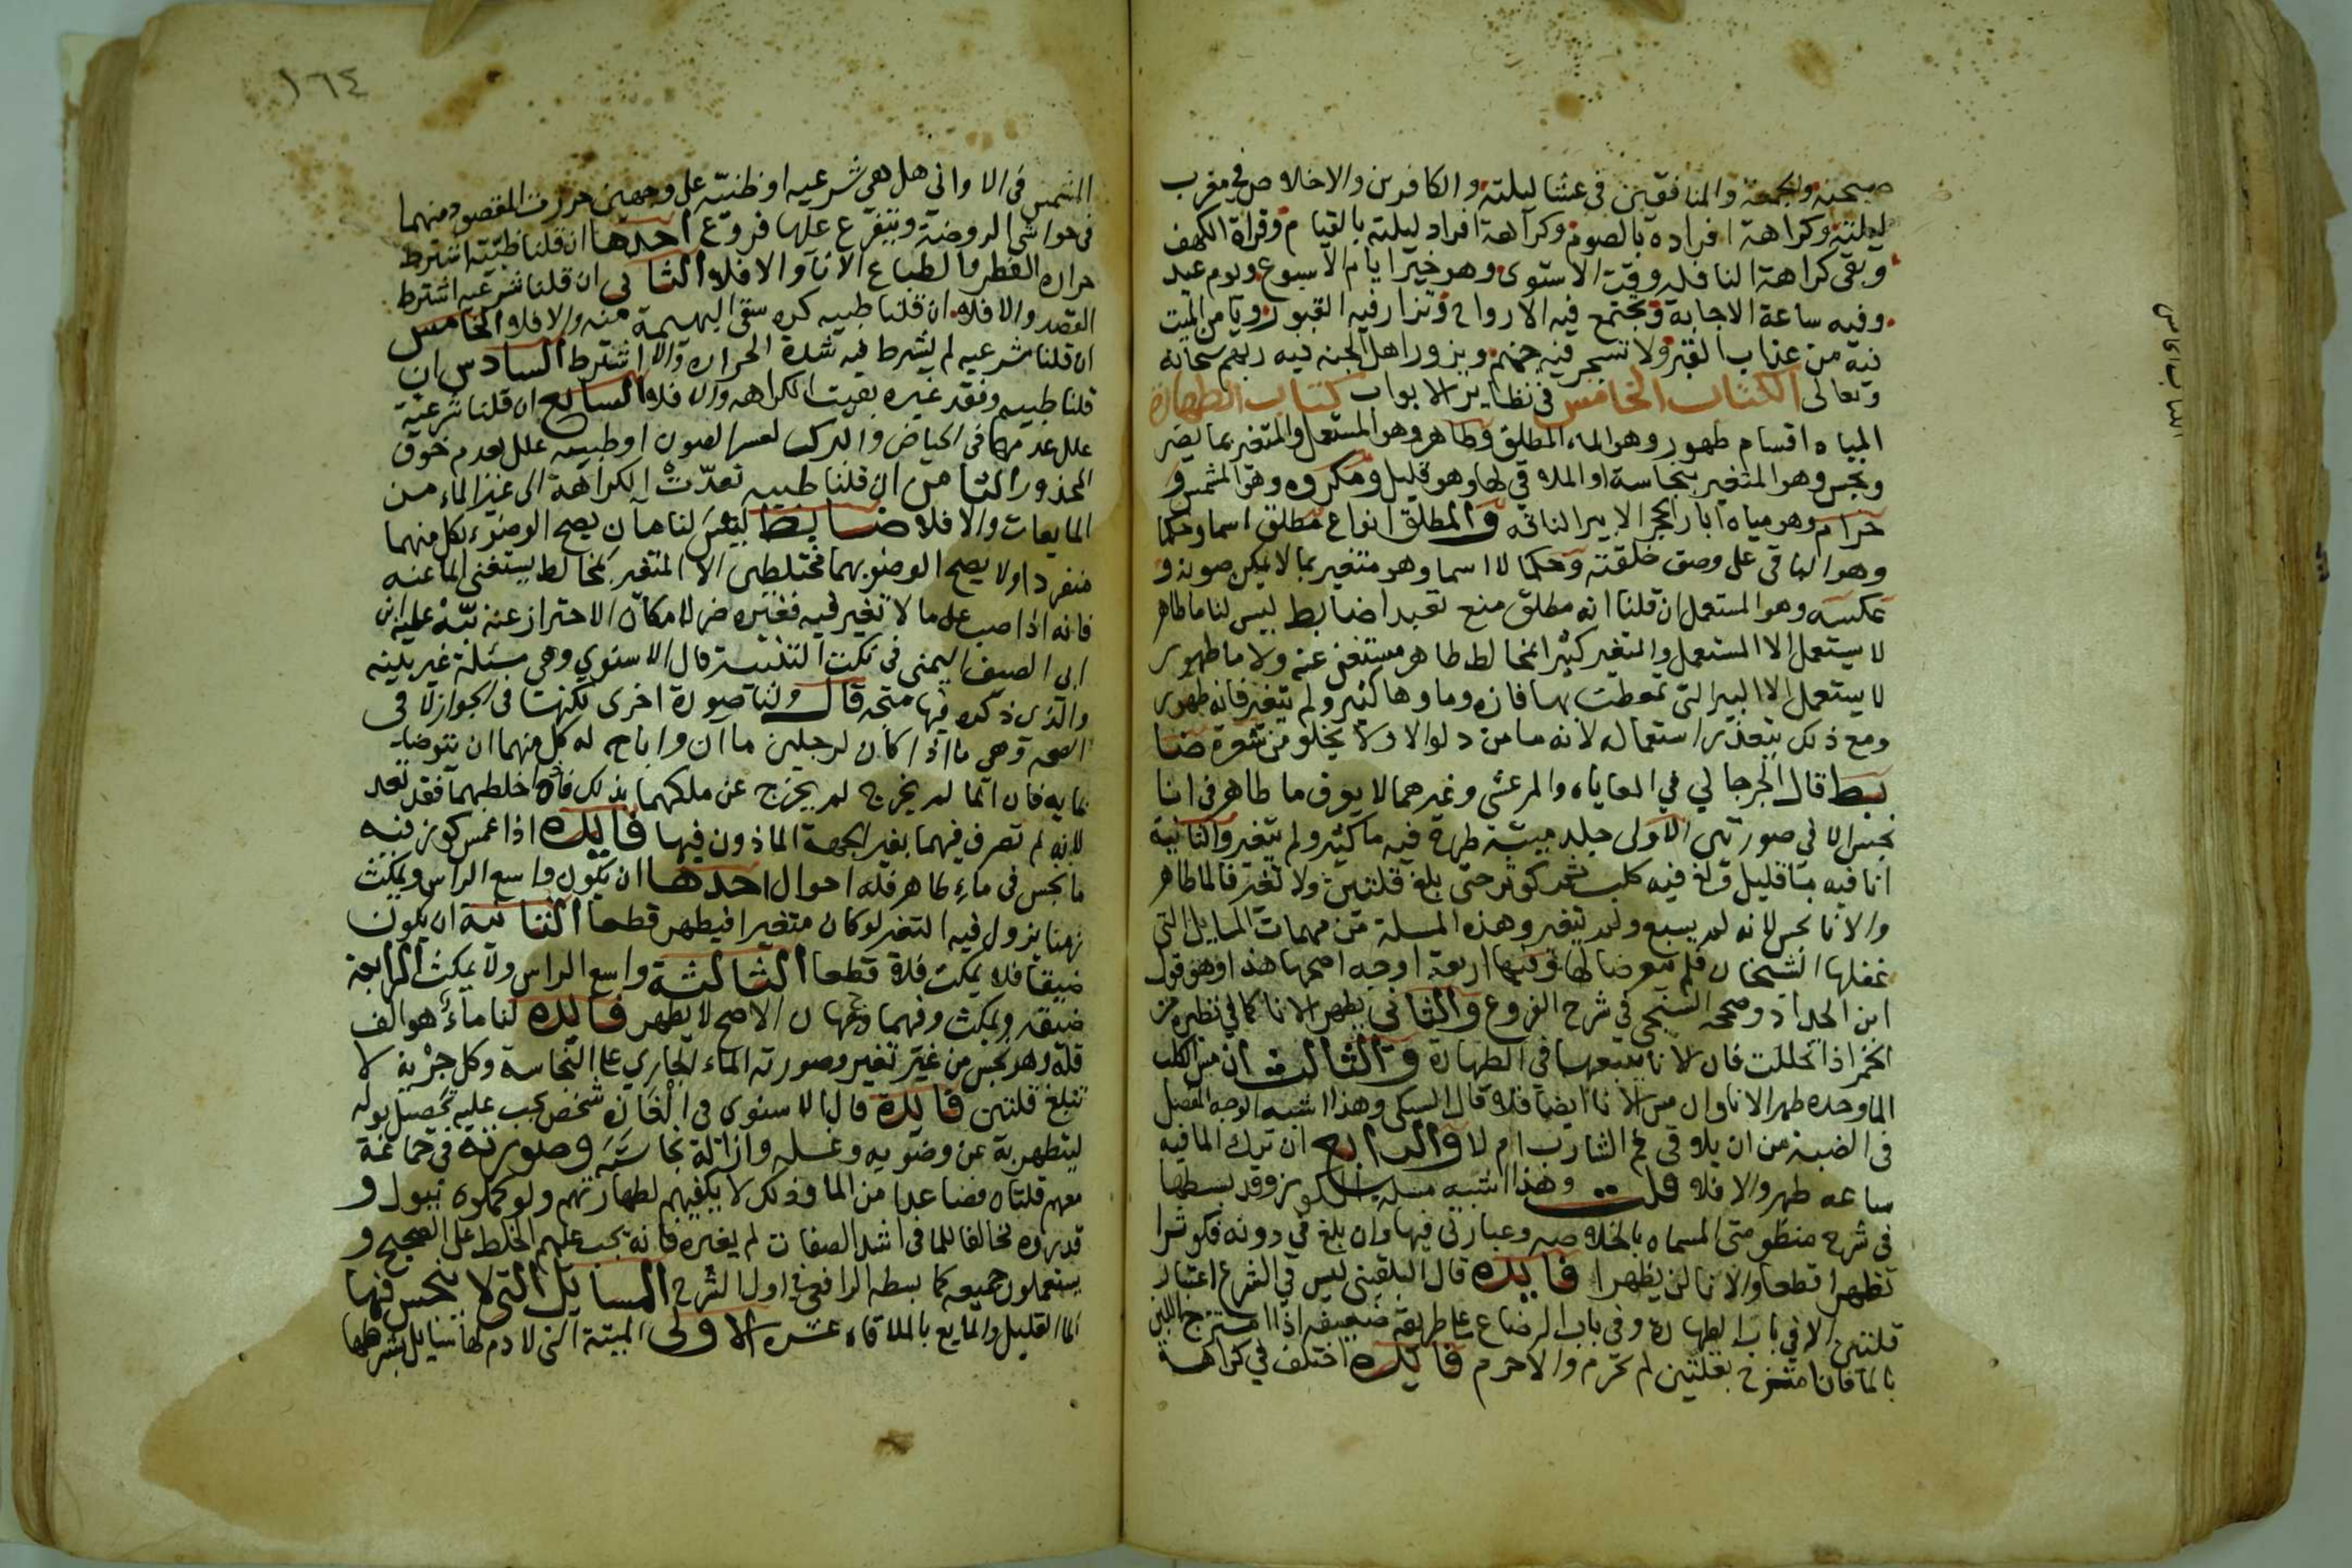 صبحته والجمعة والمنافقين في عشا ليلته والكافرين والاخلاص في مغرب
ليلته وكراهة افراده بالصوم وكراهة افراد ليلته بالقيام وقراة الكهف
وبقى كراهة النافله وقت الاستوى وهو خير ايام الاسبوع ويوم عيد
وفيه ساعة الاجابة وتجتمع فيه الارواح وتزار فيه القبور ويامن الميت
فيه من عذاب القبر ولا تسجر فيه جهنم ويزور اهل الجنه فيه ربهم سبحانه
وتعالى الكتاب الخامس في نظاير الابواب كتاب الطهارة
المياه اقسام طهور وهو الماء المطلق وطاهر وهو المستعمل والمتغير بما يضر
ونجس وهو المتغير بنجاسة او الملاقي لها وهو قليل ومكروه وهو المشمس و
حرام وهو مياه ابار الحجر الا بير الناقه والمطلق انواع مطلق اسما وحكما
وهو الباقي على وصف خلقته وحكما لا اسما وهو متغير بما لا يمكن صونه و
عكسه وهو المستعمل ان قلنا انه مطلق منع تعبدا ضابط ليس لنا ما طاهر
لا يستعمل الا المستعمل والمتغير كثيرا بمخالط طاهر مستغنى عنه ولا ما طهور
لا يستعمل الا البير التي تمعطت بها فاره وماوها كثير ولم يتغير فانه طهور
ومع ذلك يتعذر استعماله لانه ما من دلو الا ولا يخلو من شعرة ضا
بط قال الجرجاني في المعاياه والمرعشي وغيرهما لا يعرف ما طاهر في انا
نجس الا في صورتين الاولى جلد ميتة طرح فيه ما كثير ولم يتغير والثانية
انا فيه ما قليل ولغ فيه كلب ثم كوثر حتى بلغ قلتين ولا تغير فالما طاهر
والانا نجس لانه لم يسبع ولم يتغير وهذه المسلة من مهمات المسايل التي
غفلها الشيخان فلم يتعرضا لها وفيها اربعة اوجه اصحها هذا وهو قول
ابن الحداد وصححه السنجي في شرح الفروع والثاني يطهر الانا كما في نظيره من
الخمر اذا تخللت فان الانا يتبعها في الطهارة والثالث ان مس الكلب
الما وحده طهر الانا وان مس الانا ايضا فلا قال السبكي وهذا اشبه الوجه المفصل
في الضبة من ان يلاقي فم الشارب ام لا والرابع ان ترك الما فيه
ساعه طهر والا فلا قلت وهذا اشبه مسلة الكوز وقد بسطها
في شرح منظومتي المسماه بالخلاصه وعبارتي فيها وان بلغ في دونه فكوثرا
تطهرا قطعا والانا لن يطهرا فايدة قال البلقيني ليس في الشرع اعتبار
قلتين الا في باب الطهارة وفي باب الرضاع على طريقة ضعيفه اذا امتزج اللبن
بالما فان امتزج بقلتين لم تحرم والا حرم فايدة اختلف في كراهة
١٦٤
المشمس في الاواني هل هي شرعيه او طبيه على وجهين حررت المقصود منهما
في حواشي الروضة ويتفرع عليها فروع احدها ان قلنا طبيه اشترط
حراره القطر وانطباع الانآ والا فلا الثاني ان قلنا شرعيه اشترط
القصد والا فلا ان قلنا طبيه كره سقى البهيمة منه والا فلا الخامس
ان قلنا شرعيه لم يشترط فيه شدة الحراره والا اشترط السادس ان
قلنا طبيه وفقد غيره بقيت الكراهه والا فلا السابع ان قلنا شرعية
علل عدمها في الحياض والبرك لعسر الصون او طبيه علل لعدم خوف
المحذور الثامن ان قلنا طبيه تعدت الكراهة الى غير الماء من
المايعات والا فلا ضابط ليس لنا مآن يصح الوضوء بكل منهما
منفردا ولا يصح الوضو بهما مختلطين الا المتغير بمخالط يستغنى الما عنه
فانه اذا صب على ما لا تغير فيه فغيره ضر لامكان الاحتراز عنه نبه عليه ابن
ابي الصيف اليمني في نكت التنبيه قال الاسنوي وهي مسئلة غريبة
والذي ذكره فيها متجه قال ولنا صورة اخرى لكنها في الجواز لا في
الصحه وهي ما اذا كان لرجلين مآن واباح له كل منهما ان يتوضا
بمايه فان الما لم يخرج لم يخرج عن ملكهما بذلك فاذا خلطهما فقد تعد
لانه لم تصرف فيهما بغير الجهة الماذون فيها فايده اذا غمس كوز فيه
ما نجس في ماء طاهر فله احوال احدها ان يكون واسع الراس ويمكث
زمنا يزول فيه التغير لو كان متغيرا فيطهر قطعا الثانية ان يكون
ضيقا فلا يمكث فلا قطعا الثالثة واسع الراس ولا يمكث الرابعة
ضيقه ويمكث وفيهما وجهان الاصح لا يطهر فايده لنا ماء هو الف
قلة وهو نجس من غير تغير وصورته الماء الجاري على النجاسة وكل جرية لا
تبلغ قلتين فايدة قال الاسنوى في الغازه شخص يجب عليه تحصيل بوله
ليتطهر به عن وضويه وغسله وازالة نجاسته وصورته في جماعة
معهم قلتاه فصاعدا من الما وذلك لا يكفيهم لطهارتهم ولو كملوه ببول و
قدروه مخالفا للما في اشد الصفات لم يغيره فانه يجب عليهم الخلط على الصحيح و
يستعملون جميعه كما بسطه الرافعي في اول الشرح المسايل التي لا ينجس فيها
الما القليل والمايع بالملاقاه عشره الاولى الميتة التي لا دم لها سايل بشرطها